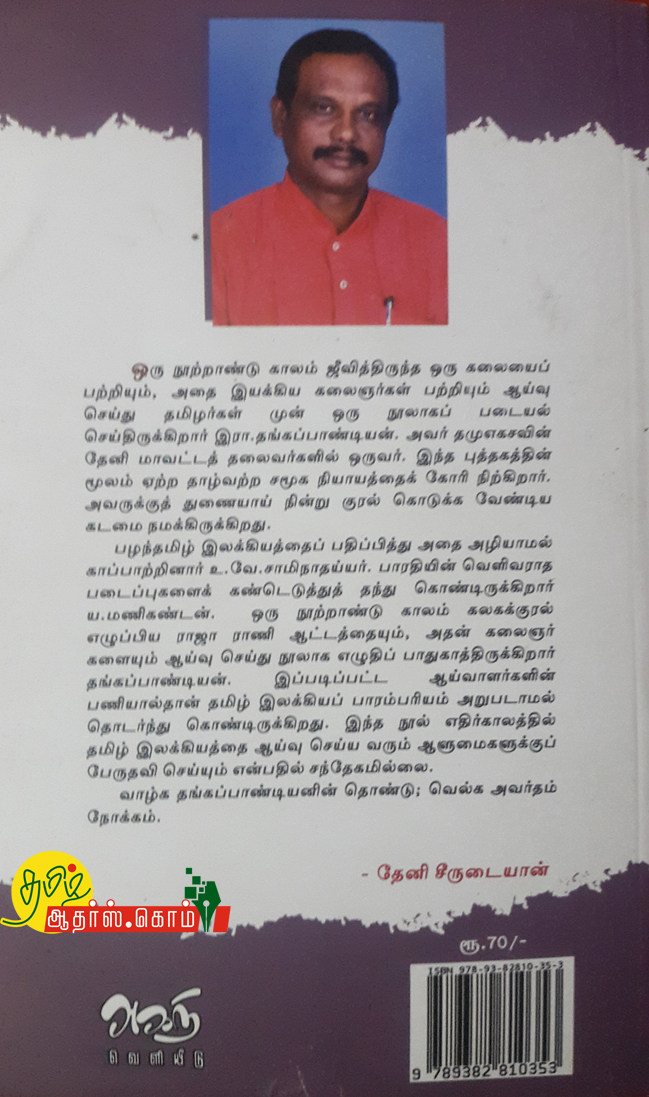 ஒரு நூற்றாண்டு காலம் ஜீவித்திருந்த ஒரு கலையைப்
பற்றியும், அதை இயக்கிய கலைஞர்கள் பற்றியும் ஆய்வு
செய்து தமிழர்கள் முன் ஒரு நூலாகப் படையல்
செய்திருக்கிறார் இரா.தங்கப்பாண்டியன். அவர் தமுஎகசவின்
தேனி மாவட்டத் தலைவர்களில் ஒருவர். இந்த புத்தகத்தின்
மூலம் ஏற்ற தாழ்வற்ற சமூக நியாயத்தைக் கோரி நிற்கிறார்.
அவருக்குத் துணையாய் நின்று குரல் கொடுக்க வேண்டிய
கடமை நமக்கிருக்கிறது.
பழந்தமிழ் இலக்கியத்தைப் பதிப்பித்து அதை அழியாமல்
காப்பாற்றினார் உ.வே.சாமிநாதய்யர். பாரதியின் வெளிவராத
படைப்புகளைக் கண்டெடுத்துத் தந்து கொண்டிருக்கிறார்
ய.மணிகண்டன். ஒரு நூற்றாண்டு காலம் கலகக்குரல்
எழுப்பிய ராஜா ராணி ஆட்டத்தையும், அதன் கலைஞர்
களையும் ஆய்வு செய்து நூலாக எழுதிப் பாதுகாத்திருக்கிறார்
தங்கப்பாண்டியன். இப்படிப்பட்ட ஆய்வாளர்களின்
பணியால்தான் தமிழ் இலக்கியப் பாரம்பரியம் அறுபடாமல்
தொடர்ந்து கொண்டிருக்கிறது. இந்த நூல் எதிர்காலத்தில்
தமிழ் இலக்கியத்தை ஆய்வு செய்ய வரும் ஆளுமைகளுக்குப்
பேருதவி செய்யும் என்பதில் சந்தேகமில்லை.
வாழ்க தங்கப்பாண்டியனின் தொண்டு; வெல்க அவர்தம்
நோக்கம்.
- தேனி சீருடையான்
தமிழ்
ஆதர்ஸ்.கொம்
ரூ.70/-
ISBN 978-93-82810-35-3
9 789382 810353
அகரு
வெளியீடு